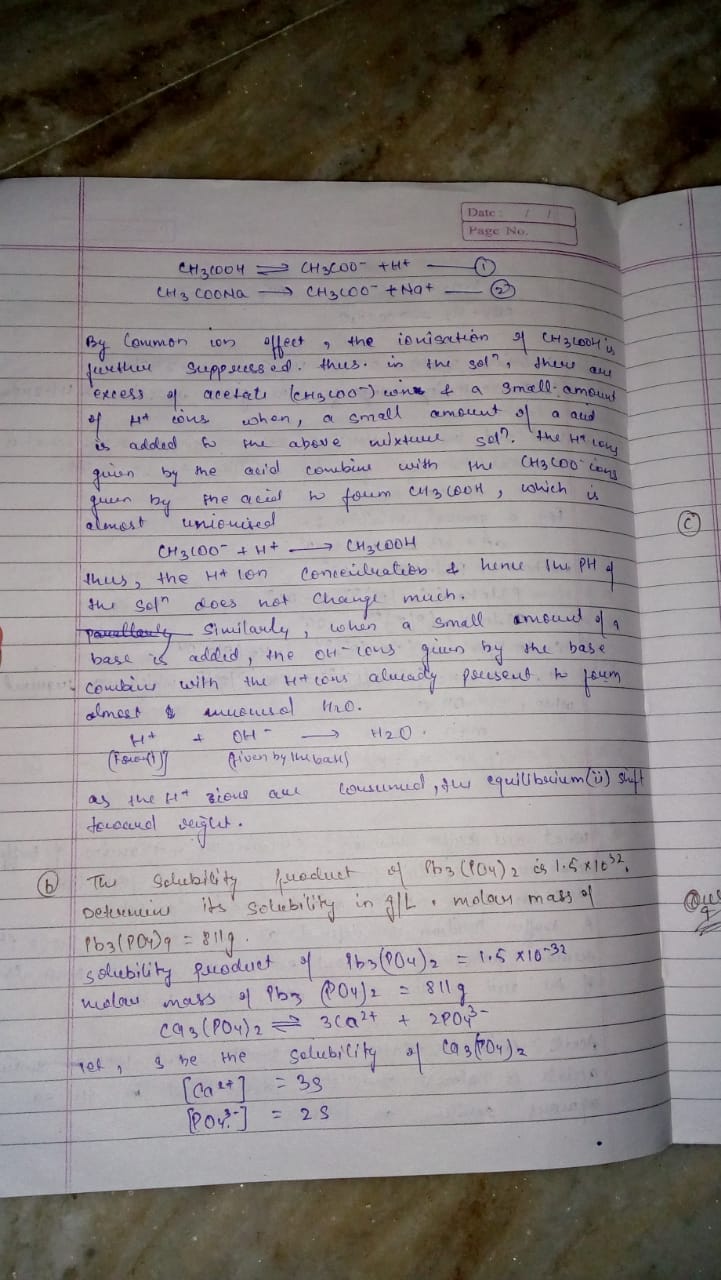 Date: / /
Page No.
CH3COOH ⇌ CH3COO- + H+ — ①
CH3COONa → CH3COO- + Na+ — ②
By Common ion effect, the ionisation of CH3COOH is
further suppressed. thus. in the solⁿ, there are
excess of acetate (CH3COO-) & a small amount
of H+ ions when, a small amount of a acid
is added to the above mixture solⁿ. the H+ ions
given by the acid combine with the CH3COO- ions
given by the acid to foum CH3COOH, which is
almost unionised
CH3COO- + H+ → CH3COOH
thus, the H+ ion Concentration & hence the PH of
the solⁿ does not change much.
Similarly, when a small amount of a
base is added, the OH- ions given by the base
combine with the H+ ions already present to foum
almost H2O.
H+ + OH- → H2O.
given by the
as the H+ are consumed, the equilibrium (ii) shift
toward right.
(b) The solubility product of Pb3(PO4)2 is 1.5 x 10^32.
Determine its solubility in g/L. molar mass of
= 811g.
solubility product of Pb3(PO4)2 = 1.5 x10^-32
molar mass of Pb3 (PO4)2 = 811g
Ca3(PO4)2 ⇌ 3Ca2+ + 2PO4^3-
let, s be the solubility of Ca3(PO4)2
[Ca2+] = 3s
[PO4^3-] = 2s
(c)